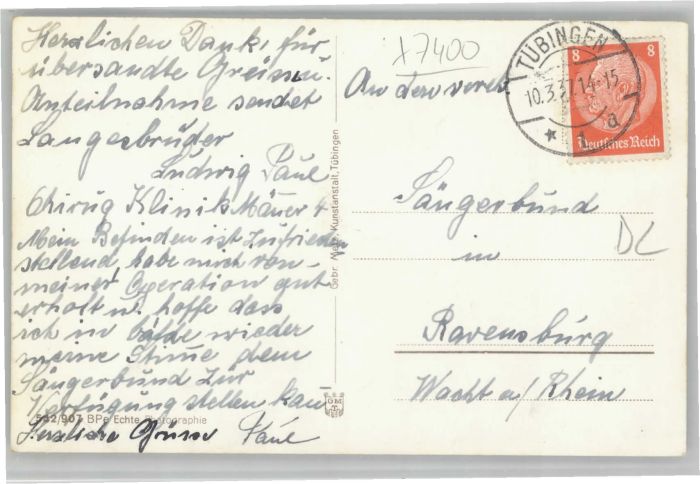 Herzlichen Dank, für
übersandte Greisse u.
Anteilnahme sendet
Sangesbrüder
Ludwig Paul
Chirug Klinik Mäuer 4
Mein Befinden ist Zufrieden
stellend habe mich von
meiner Operation gut
erholt u. hoffe dass
ich in bälde wieder
meine Stime dem
Sängerbund zür
Verfügung stellen kan!
Herzliche Grüsse Paul
582/907 BPe Echte Photographie
Gebr. Metz, Kunstanstalt, Tübingen
GMT
x7400
TÜBINGEN
10.3.37.14-15
* 1 a
8 8
Deutsches Reich
An den verehr
Sängerbund
in
DL
Ravensburg
Wacht a/Rhein